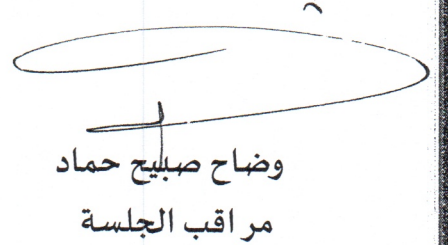 وضاح صبليح حماد
مراقب الجلسة